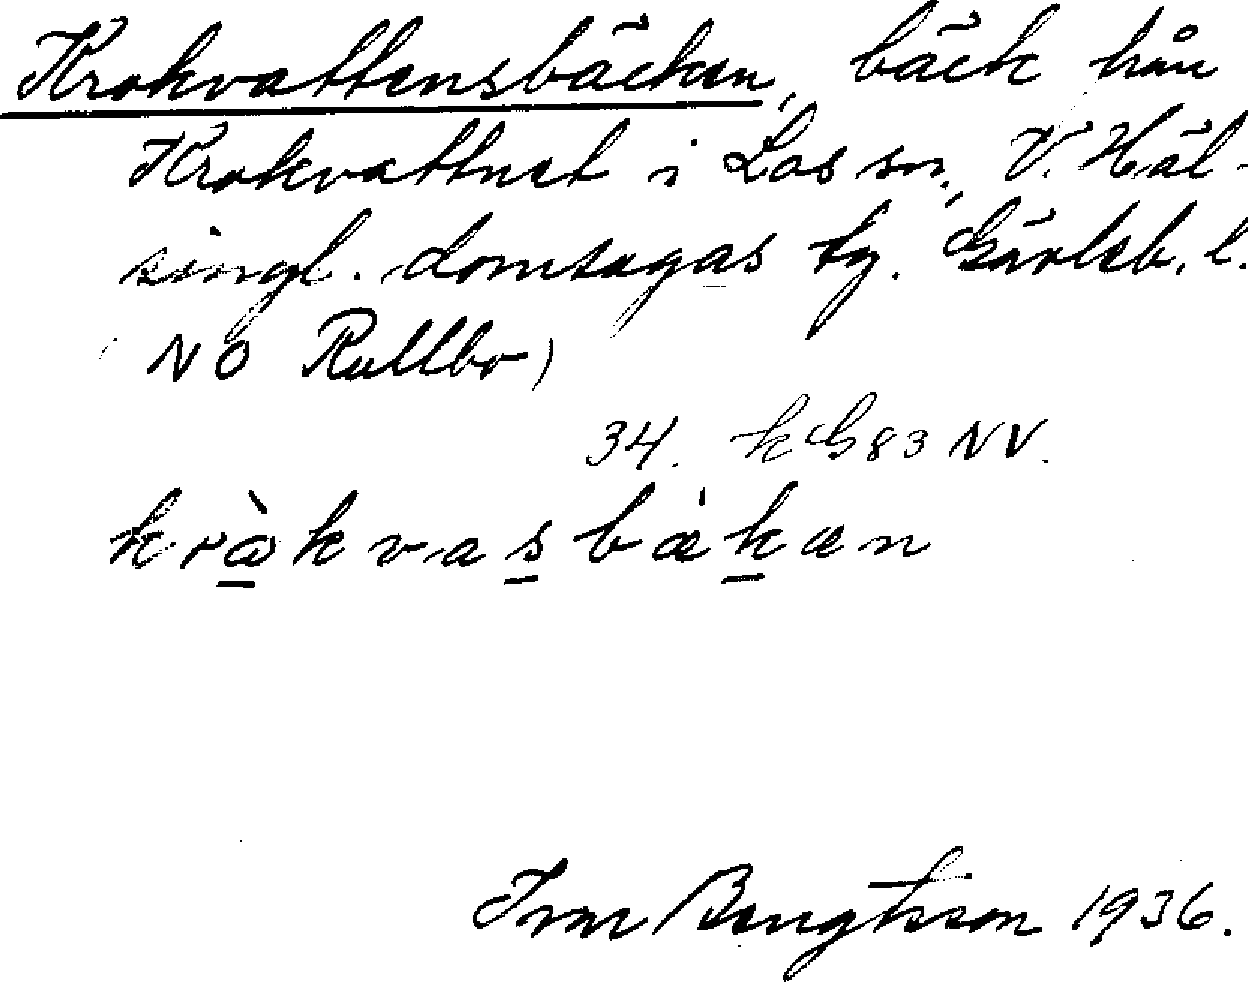 Krokvattensbäcken, bäck från
Krokvattnet i Los sn, V. Häl-
singl. domsagas tg. Gävleb. l.
NO Rullbo)
34. kG83 NV.
kròkvasbä̀kæn
Ivar Bengtsson 1936.